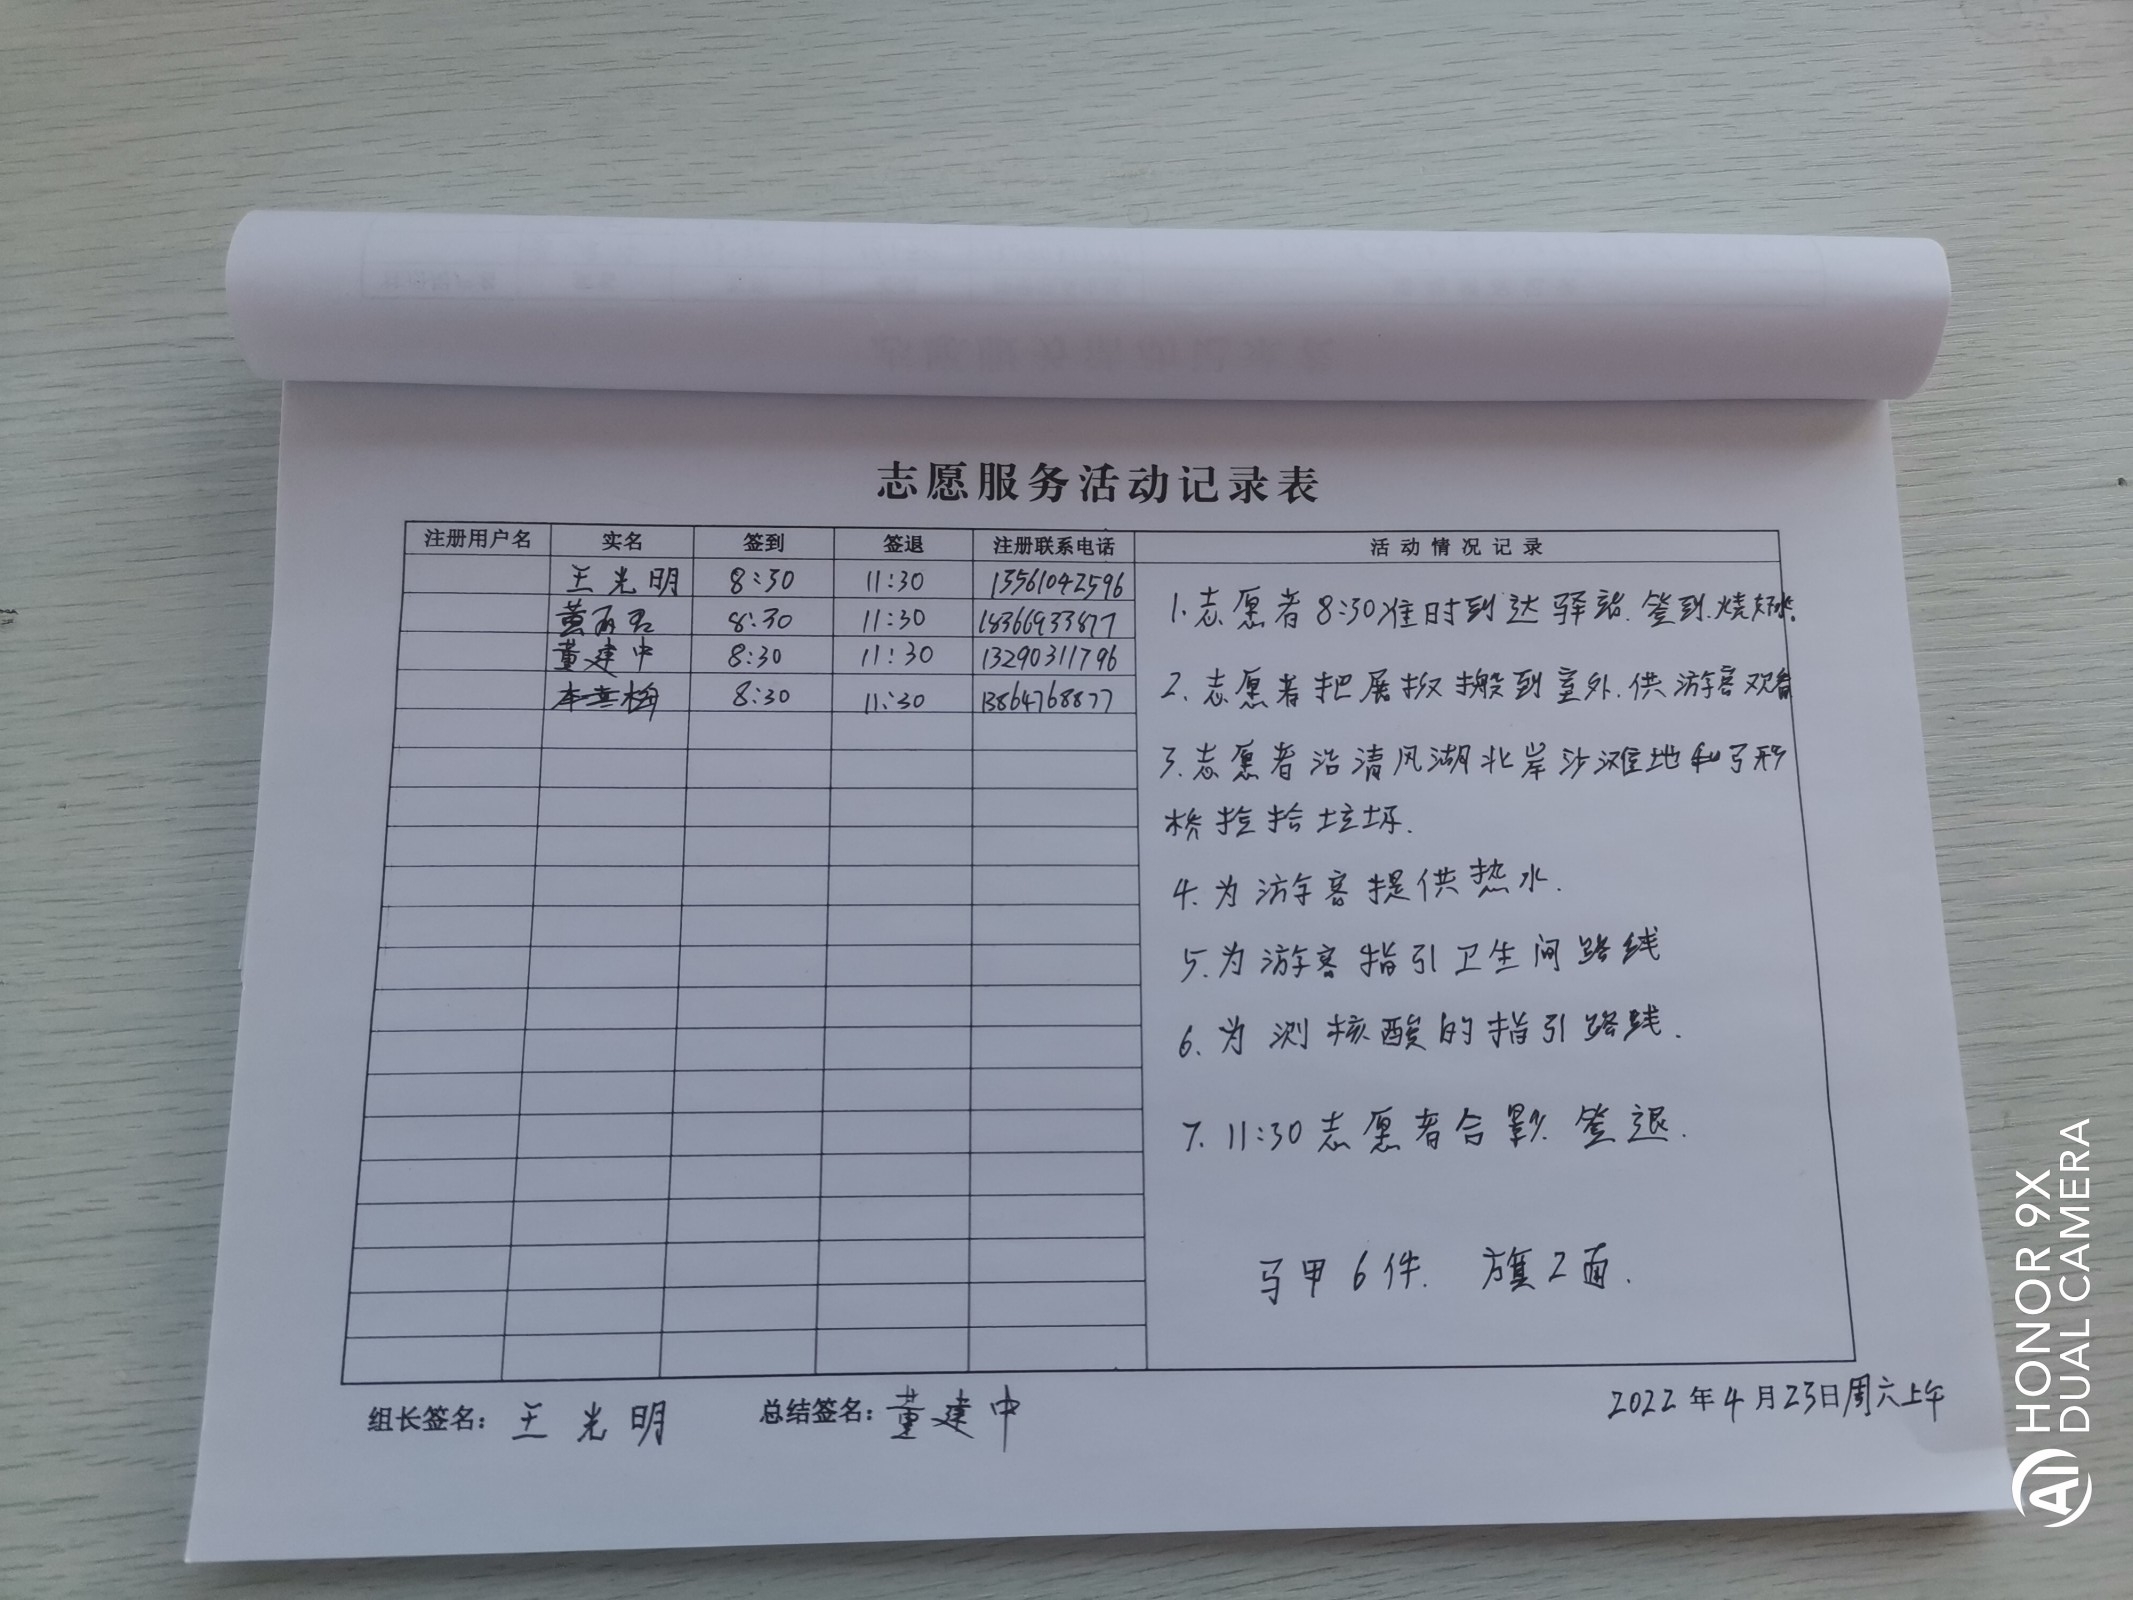 志愿服务活动记录表
注册用户名 实名 签到 签退 注册联系电话 活动情况记录
王光明 8:30 11:30 13561042596
8:30 11:30 18366933877
董建中 8:30 11:30 13290311796
8:30 11:30 13864768877
1.志愿者8:30准时到达驿站.签到.烧水.
2.志愿者把展板搬到室外.供游客观看
3.志愿者沿清风湖北岸沙滩地和弓形
桥捡拾垃圾.
4.为游客提供热水.
5.为游客指引卫生间路线
6.为测核酸的指引路线.
7.11:30志愿者合影.签退.
马甲6件. 旗2面.
组长签名：王光明 总结签名：董建中 2022年4月23日周六上午
HONOR 9X
DUAL CAMERA
AI